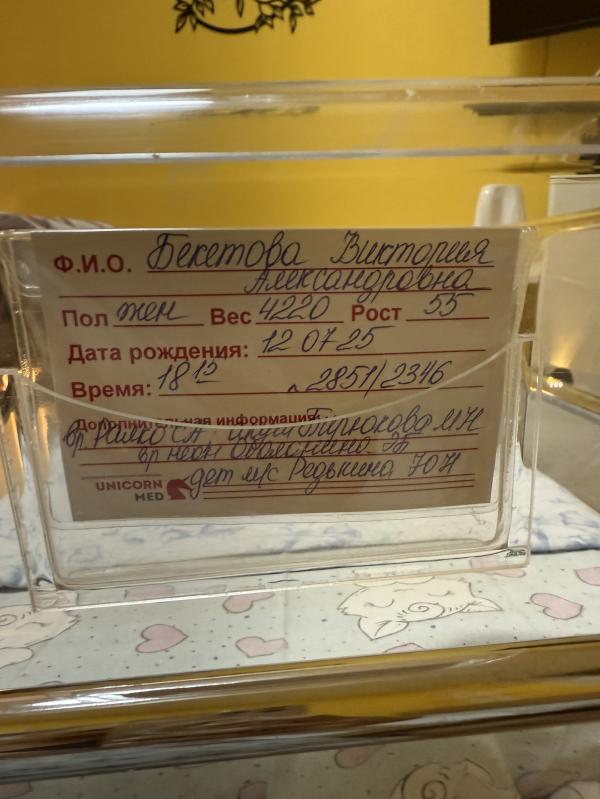 Ф.И.О. Бекетова Виктория
Александровна
Пол жен Вес 4220 Рост 55
Дата рождения: 12 07 25
Время: 18 12 2851/2346
Дополнительная информация:
вр СА, акуш Бирюкова МН
вр неон ГВ
дет м/с Редькина ЮН
UNICORN
MED